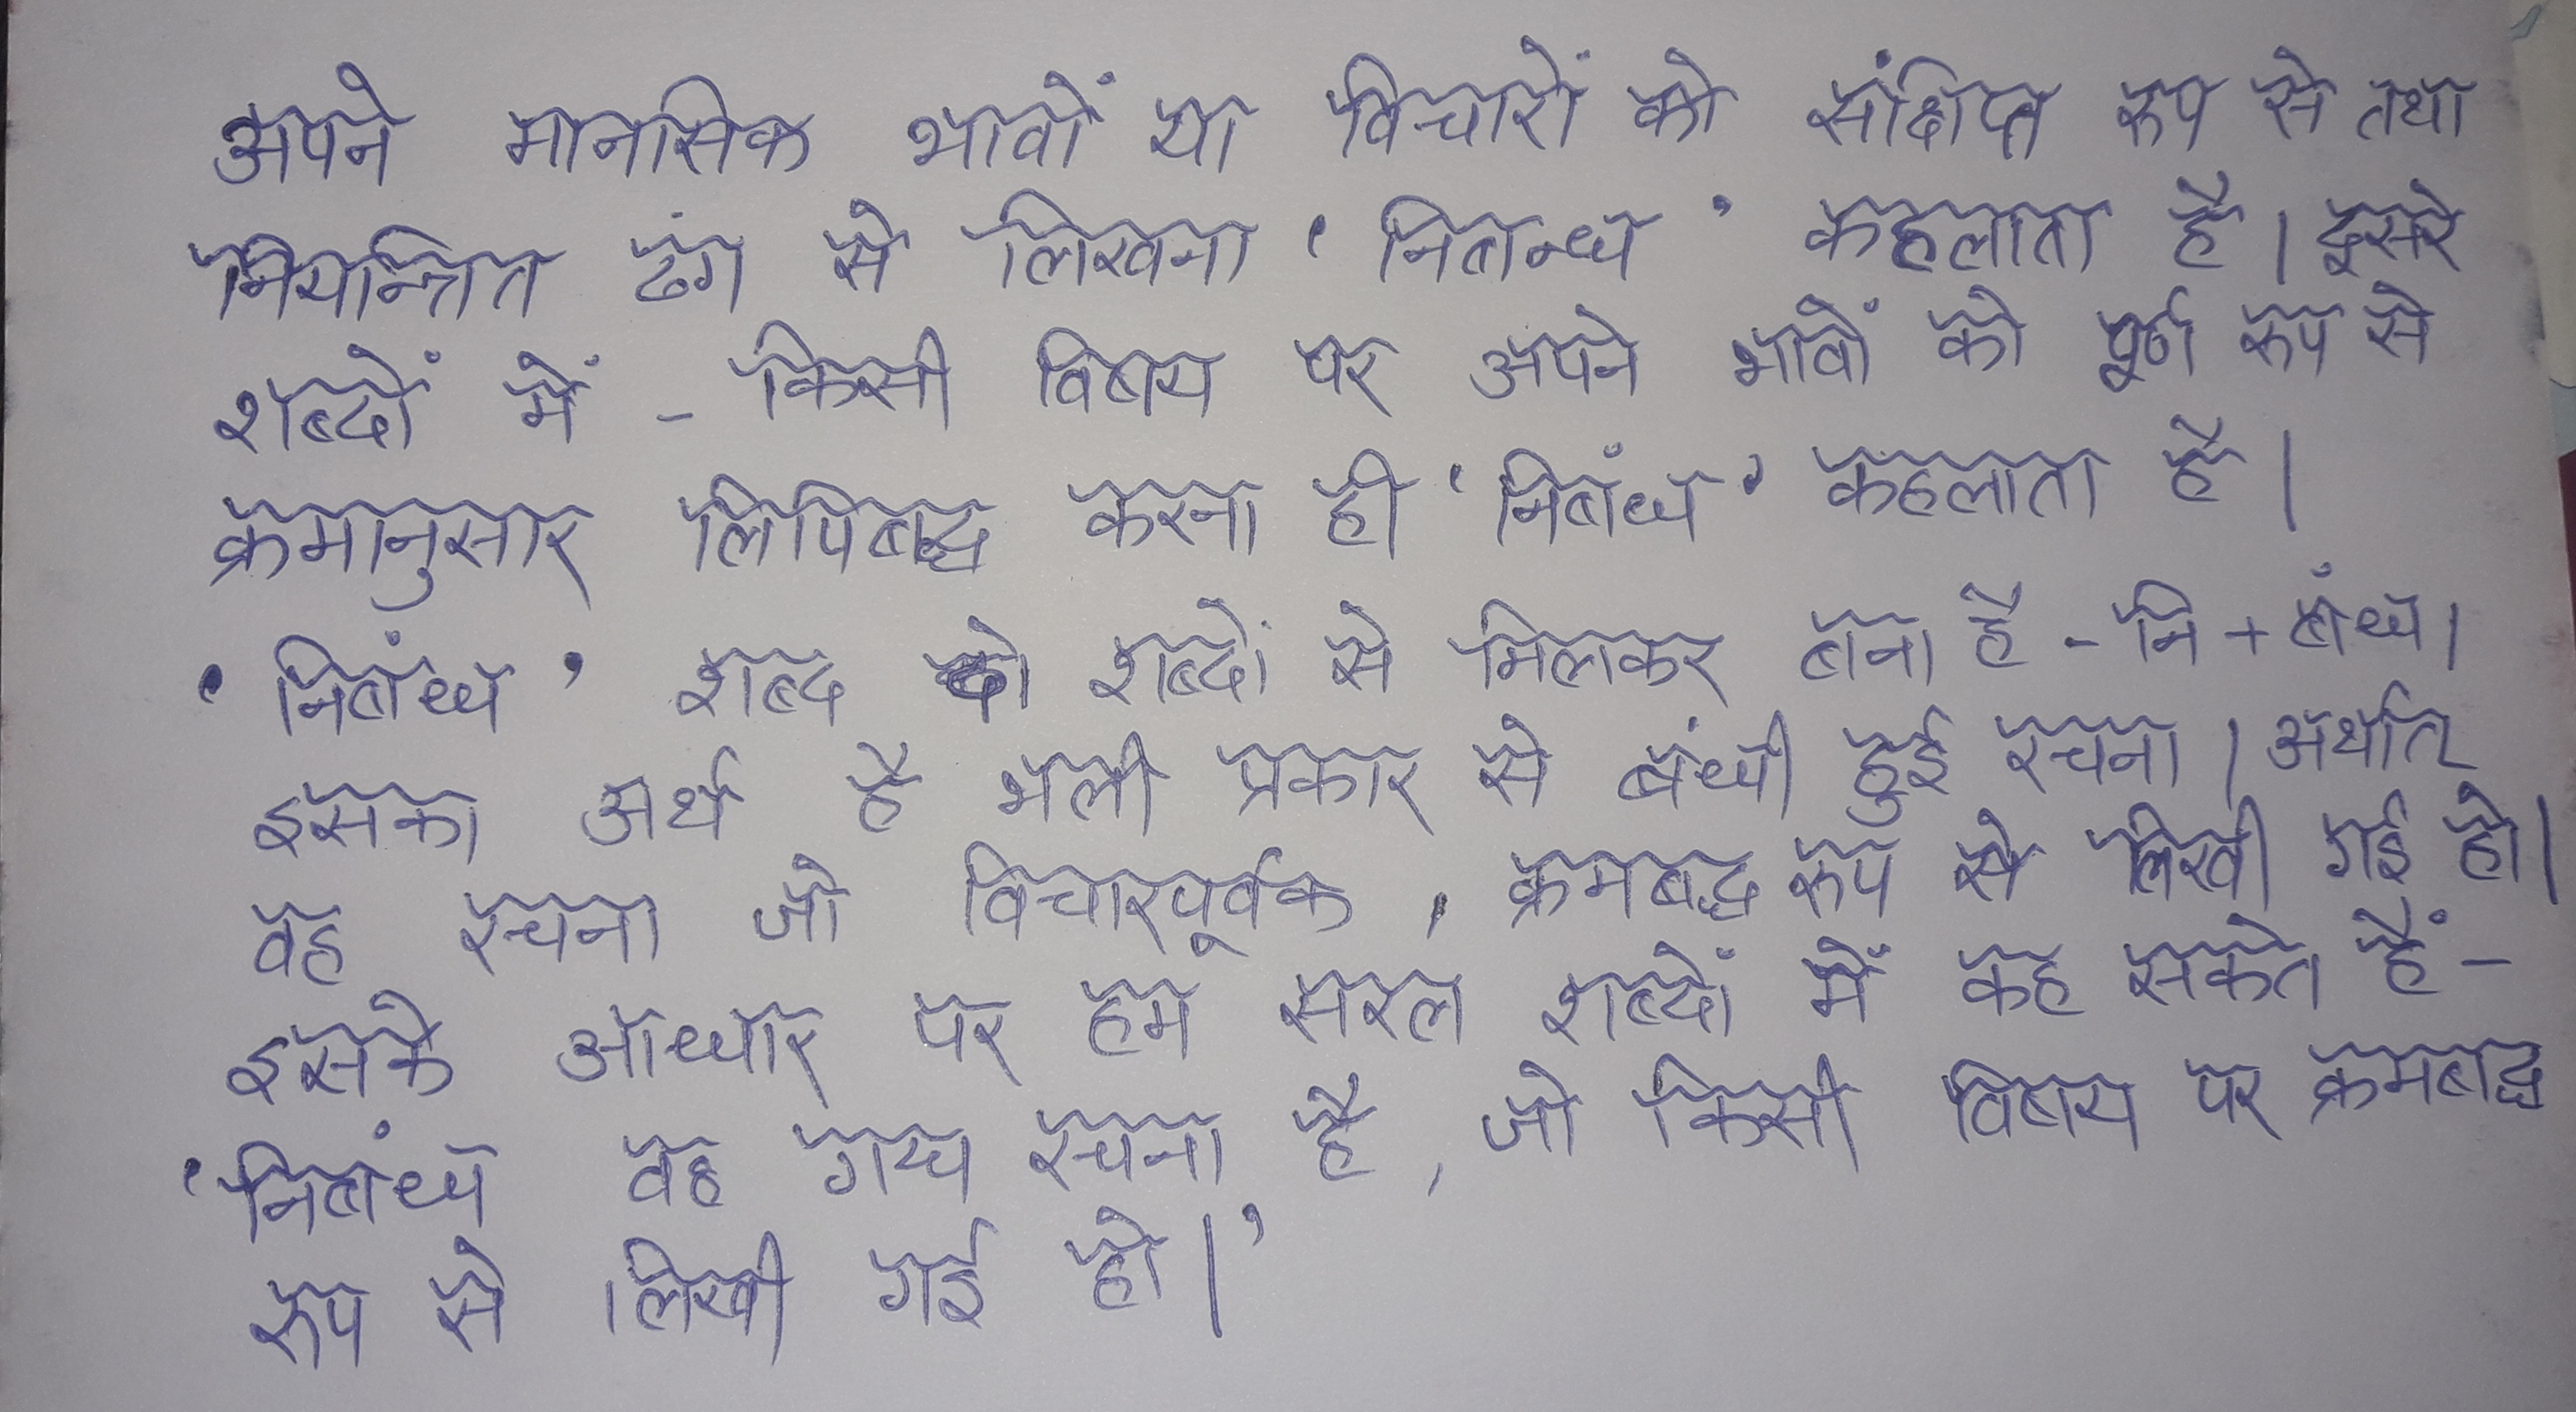 अपने मानसिक भावों या विचारों को संक्षिप्त रूप से तथा
नियन्त्रित ढंग से लिखना ‘निबन्ध’ कहलाता है। दूसरे
शब्दों में - किसी विषय पर अपने भावों को पूर्ण रूप से
क्रमानुसार लिपिबद्ध करना ही ‘निबंध’ कहलाता है।
‘निबंध’ शब्द दो शब्दों से मिलकर बना है - नि + बंध।
इसका अर्थ है भली प्रकार से बंधी हुई रचना। अर्थात्
वह रचना जो विचारपूर्वक, क्रमबद्ध रूप से लिखी गई हो।
इसके आधार पर हम सरल शब्दों में कह सकते हैं -
‘निबंध वह गद्य रचना है, जो किसी विषय पर क्रमबद्ध
रूप से लिखी गई हो।’